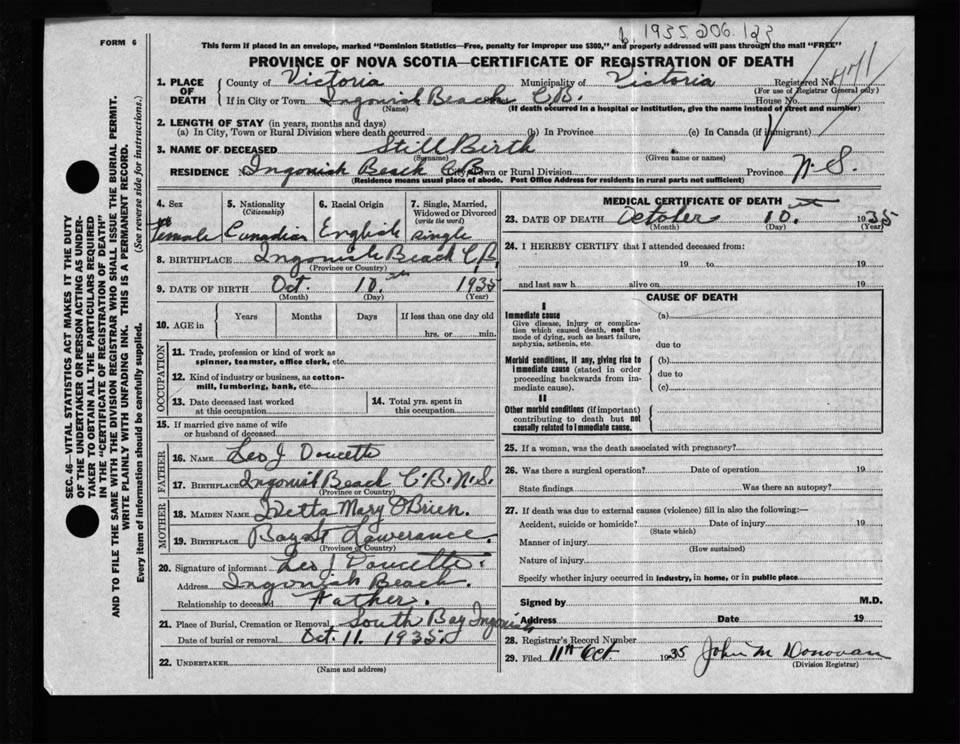 1935.206.123
FORM 6
This form if placed in an envelope, marked "Dominion Statistics—Free, penalty for improper use $300," and properly addressed will pass through the mail "FREE"
PROVINCE OF NOVA SCOTIA—CERTIFICATE OF REGISTRATION OF DEATH
1. PLACE OF DEATH County of Victoria Municipality of Victoria Registered No. 471
(For use of Registrar General only)
If in City or Town Ingonish Beach C.B. House No.
(Name) (If death occurred in a hospital or institution, give the name instead of street and number)
2. LENGTH OF STAY (in years, months and days)
(a) In City, Town or Rural Division where death occurred (b) In Province (c) In Canada (if immigrant)
3. NAME OF DECEASED Still Birth
(Surname) (Given name or names)
RESIDENCE N Ingonish Beach C.B. City, Town or Rural Division Province N.S.
(Residence means usual place of abode. Post Office Address for residents in rural parts not sufficient)
4. Sex 5. Nationality (Citizenship) 6. Racial Origin 7. Single, Married, Widowed or Divorced (write the word)
Female Canadian English single
8. BIRTHPLACE Ingonish Beach C.B.
(Province or Country)
9. DATE OF BIRTH Oct. 10th 1935
(Month) (Day) (Year)
10. AGE in Years Months Days If less than one day old
hrs. or min.
OCCUPATION
11. Trade, profession or kind of work as spinner, teamster, office clerk, etc.
12. Kind of industry or business, as cotton-mill, lumbering, bank, etc.
13. Date deceased last worked at this occupation 14. Total yrs. spent in this occupation
15. If married give name of wife or husband of deceased
FATHER
16. NAME Leo J Doucette
17. BIRTHPLACE Ingonish Beach C.B. N.S.
(Province or Country)
MOTHER
18. MAIDEN NAME Ivetta Mary O'Brien.
19. BIRTHPLACE Bay St Lawerance.
(Province or Country)
20. Signature of informant Leo J Doucette.
Address Ingonish Beach.
Relationship to deceased Father.
21. Place of Burial, Cremation or Removal South Bay Ingonish
Date of burial or removal Oct. 11. 1935.
22. UNDERTAKER
(Name and address)
MEDICAL CERTIFICATE OF DEATH
23. DATE OF DEATH October 10th 1935
(Month) (Day) (Year)
24. I HEREBY CERTIFY that I attended deceased from:
19 to 19
and last saw h alive on 19
CAUSE OF DEATH
I
Immediate cause (a)
Give disease, injury or complication which caused death, not the mode of dying, such as heart failure, asphyxia, asthenia, etc.
due to
Morbid conditions, if any, giving rise to immediate cause (stated in order proceeding backwards from immediate cause).
(b)
due to
(c)
II
Other morbid conditions (if important) contributing to death but not causally related to immediate cause.
25. If a woman, was the death associated with pregnancy?
26. Was there a surgical operation? Date of operation 19
State findings Was there an autopsy?
27. If death was due to external causes (violence) fill in also the following:—
Accident, suicide or homicide? Date of injury 19
(State which)
Manner of injury
(How sustained)
Nature of injury
Specify whether injury occurred in industry, in home, or in public place
Signed by M.D.
Address Date 19
28. Registrar's Record Number
29. Filed 11th Oct. 1935 John M Donovan
(Division Registrar)
SEC. 46—VITAL STATISTICS ACT MAKES IT THE DUTY
OF THE UNDERTAKER OR PERSON ACTING AS UNDER-
TAKER TO OBTAIN ALL THE PARTICULARS REQUIRED
IN THE "CERTIFICATE OF REGISTRATION OF DEATH"
AND TO FILE THE SAME WITH THE DIVISION REGISTRAR WHO SHALL ISSUE THE BURIAL PERMIT.
WRITE PLAINLY WITH UNFADING INK. THIS IS A PERMANENT RECORD.
Every item of information should be carefully supplied. (See reverse side for instructions.)